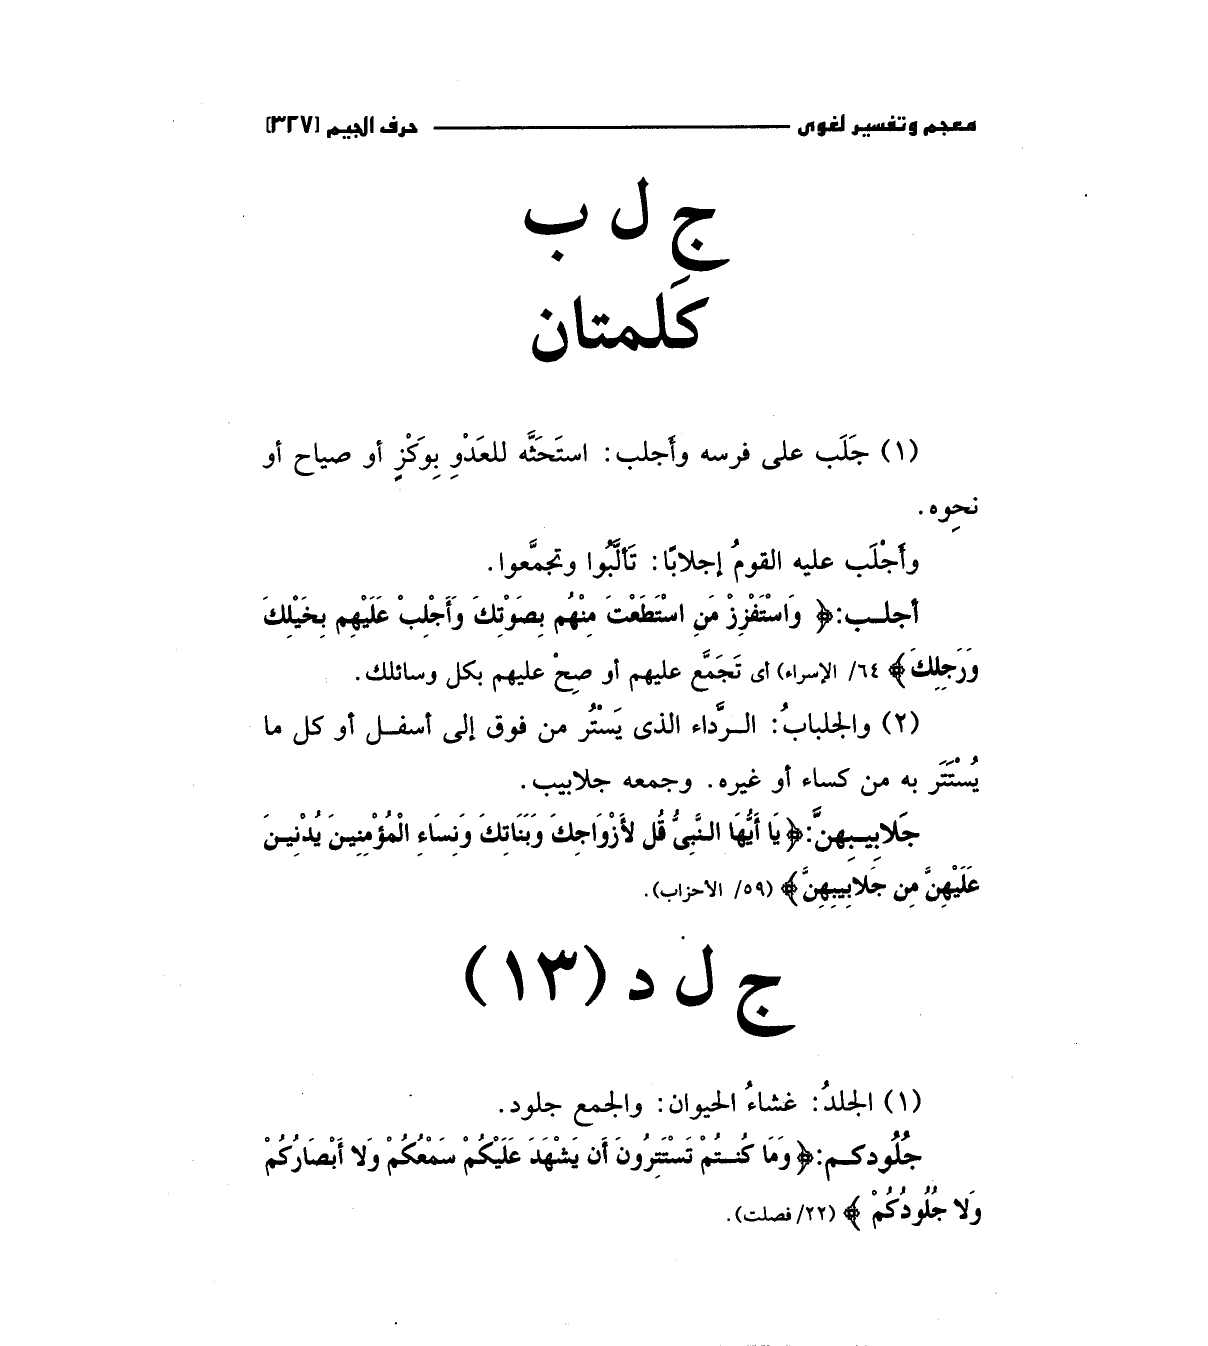 معجم وتفسير لغوى ـــــــ حرف الجيم [٣٢٧]
ج ل ب
كَلمتان
(١) جَلَب على فرسه وأَجلب: استَحَثَّه للعَدْوِ بِوَكْزٍ أو صياح أو
نحوِه.
وأَجْلَب عليه القومُ إجلابًا: تَألَّبُوا وتجمَّعوا.
أجلـب: ﴿ وَاسْتَفْزِزْ مَنِ اسْتَطَعْتَ مِنْهُم بِصَوْتِكَ وَأَجْلِبْ عَلَيْهِم بِخَيْلِكَ
وَرَجِلِكَ ﴾ ٦٤/ الإسراء) أى تَجَمَّع عليهم أو صِحْ عليهم بكل وسائلك.
(٢) والجلبابُ: الـرِّداء الذى يَسْتُر من فوق إلى أسفـل أو كل ما
يُسْتَتَر به من كساء أو غيره. وجمعه جلابيب.
جَلابِيـبِهنَّ: ﴿ يَا أَيُّهَا النَّبِىُّ قُل لأَزْوَاجِكَ وَبَنَاتِكَ وَنِسَاءِ الْمُؤْمِنِينَ يُدْنِينَ
عَلَيْهِنَّ مِن جَلابِيبِهِنَّ ﴾ (٥٩/ الأحزاب).
ج ل د (١٣)
(١) الجلدُ: غشاءُ الحيوان: والجمع جلود.
جُلُودكـم: ﴿ وَمَا كُنـتُمْ تَسْتَتِرُونَ أَن يَشْهَدَ عَلَيْكُمْ سَمْعُكُمْ وَلا أَبْصَارُكُمْ
وَلا جُلُودُكُمْ ﴾ (٢٢/ فصلت).